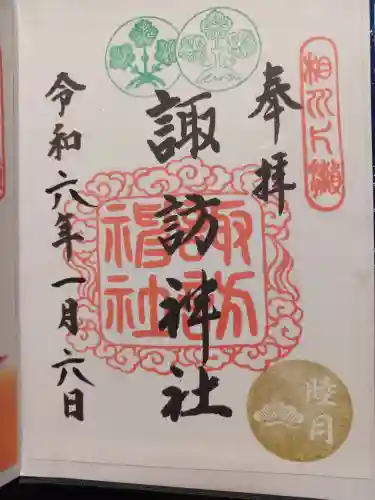 奉拝
諏訪神社
令和六年一月六日
諏訪
神社
睦月